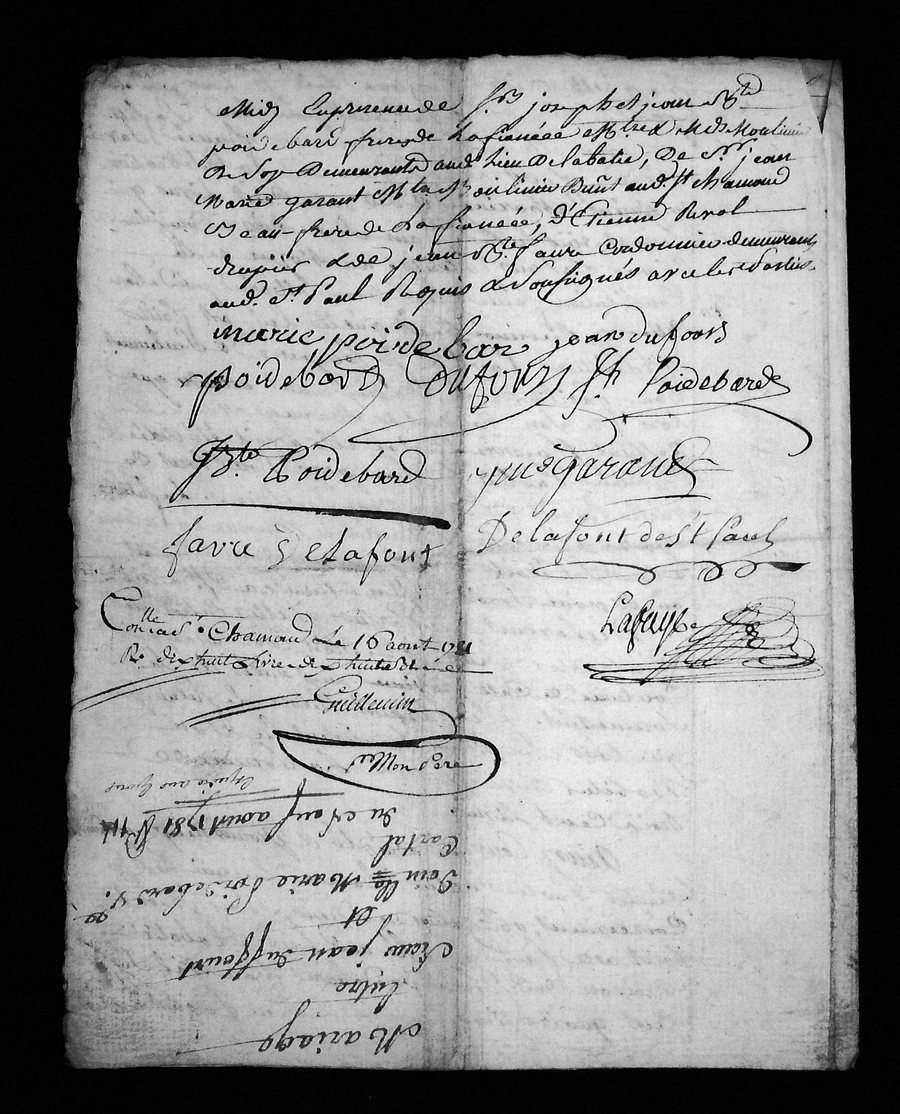 Midy En presence de Srs joseph et jean Bte
poidebard freres de La fiancée Mtres & Mds Moulinier
de Soye Demeurants aud. Lieu De labatie, De Sr. jean
Marie garant Md Moulinier Dmt aud. St chamond
Beau-frere de La fiancée, d'Etienne Revol
drapier & de jean Bte. faure Cordonnier demeurants
aud. St Paul Requis & Soussignés avec les Parties
marie poidebar jean dufours
poidebard Dufour Jh Poidebard
J Bte Poidebard jmegarand
favre Delafont Delafont de St Paul
Lafaye
Conlle a St. Chamond Le 16 aout 1781
Rs. dixhuit Livres dixhuit
Guillemin
Mariage
Entre
Sieur jean duffourt
Et
Doiselle Marie Poidebard
Du neuf aout 1781